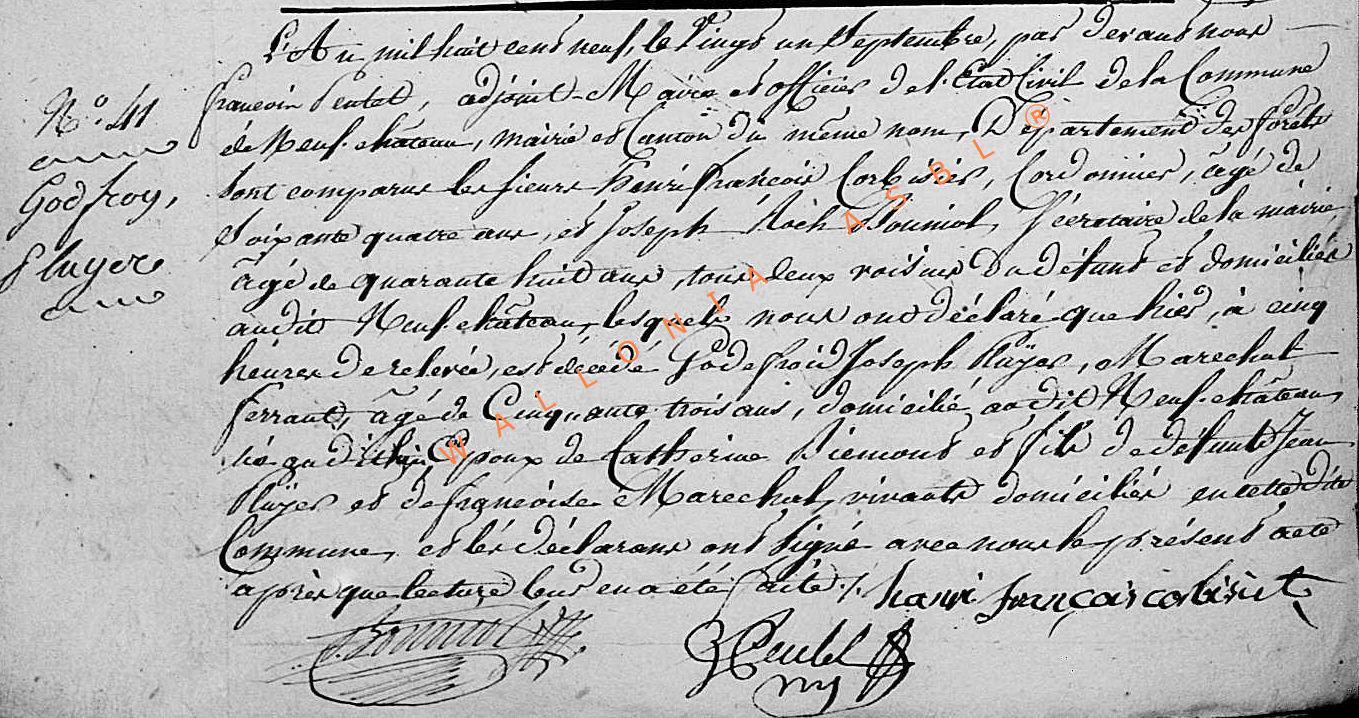 L'An mil huit cent neuf, le Vingt un Septembre, par devant nous
françois adjoint-Maire et officier de l'Etat Civil de la Commune
de Neuf-château, mairie et Canton du même nom, Département des forêts
sont comparus les sieurs henri françois Corbisier, Cordonnier, âgé de
soixante quatre ans, et Joseph Roch Sécretaire de la mairie
âgé de quarante huit ans, tous deux voisins du défunt et domiciliés
audit Neuf-château, lesquels nous ont déclaré que hier, à cinq
heures de relevée, est décédé Godefroid Joseph Maréchal
ferrant, âgé de Cinquante trois ans, domicilié audit Neuf-château,
né audit lieu, Epoux de Catherine et fils de défunts Jean
et de françoise Maréchal, vivants domiciliés en cette dite
Commune, et les déclarans ont signé avec nous le présent acte
après que lecture leur en a été faite ./.
henri françois corbisier
N.º 41
Godfroy,
WALLONIA ASBL ®